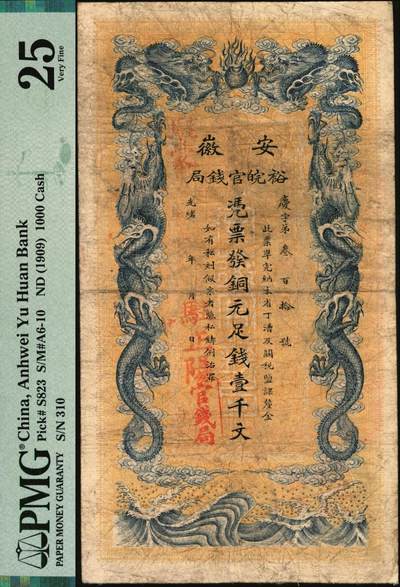 PMG
PAPER MONEY GUARANTY
® China, Anhwei Yu Huan Bank
Pick# S823 S/M#A6-10 ND (1909) 1000 Cash
S/N 310
25
Very Fine
徽 安
局錢官皖裕
慶字第叁百拾號
此票準完納本省丁漕及關稅鹽課釐金
憑票發銅元足錢壹千文
如有私刻假票者照私鑄例治罪
光緒 年 月 日
官錢局